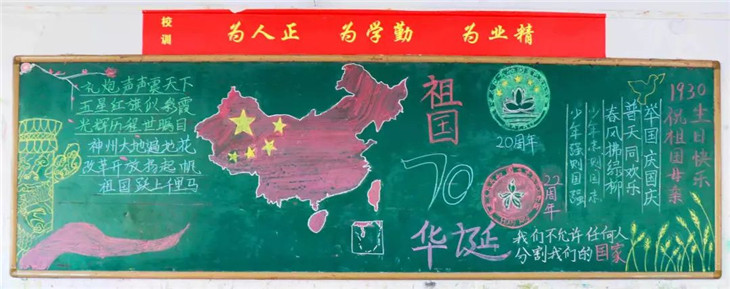 校训
为人正 为学勤 为业精
礼炮声声震天下
五星红旗似彩霞
光辉历程世瞩目
神州大地遍地花
改革开放扬起帆
祖国跃上千里马
祖国
70
华诞
20周年
22周年
1930
生日快乐
祝祖国母亲
举国庆国庆
普天同欢乐
春风拂绿柳
少年强则国强
我们不允许任何人
分割我们的国家